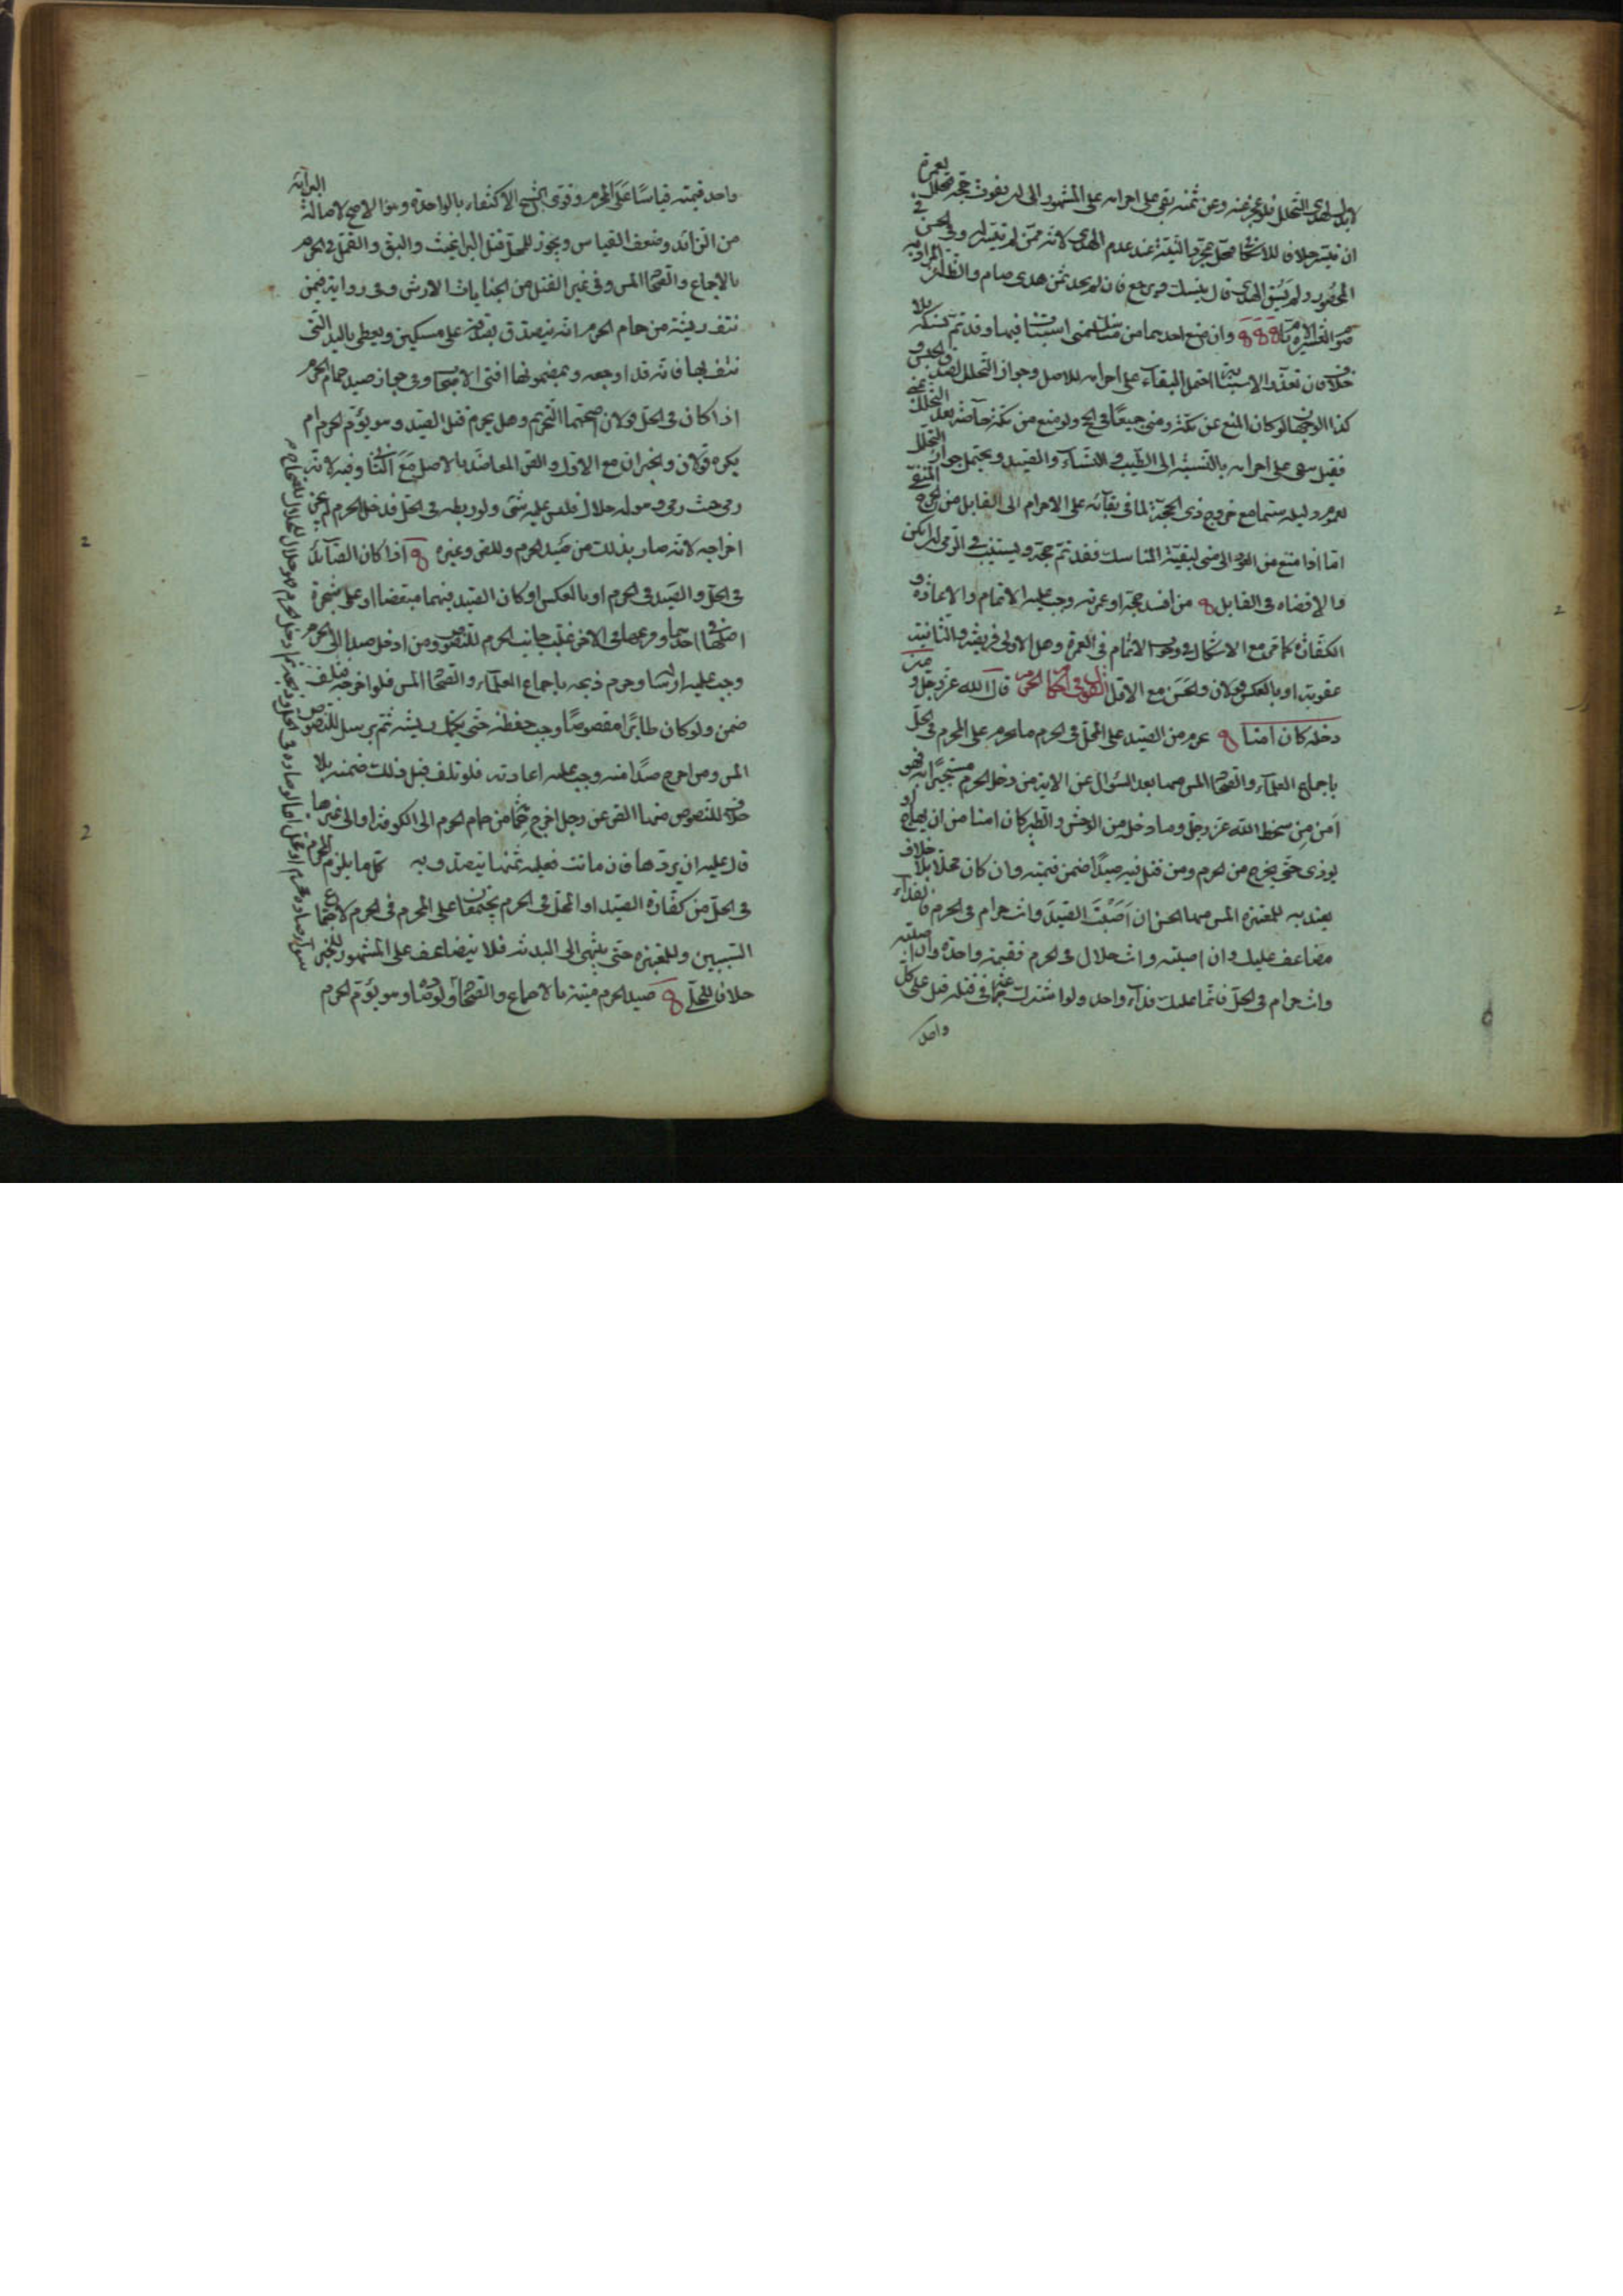 لابدل لهدى التحلل فلو عجز عنه وعن ثمنه بقى على احرامه على المشهور الى ان يفوت حجه فتحلل بعمرة
ان تيسر خلافا للاسكافى فتحلل بمجرد النية عند عدم الهدى لانه ممن لم تيسر له وفى الحسن فى
المحصور ولم يسق الهدى قال ينسك ويرجع فان لم يجد ثمن هدى صام والظاهر
وان منع احدهما من مناسك منى استناب فيها وقد تم نسكه بلا
خلاف فان تعذر الاستنابة احتمل البقاء على احرامه للاصل وجواز التحلل لصدق
كذا الوجهان لو كان المنع عن مكة ومنى جميعا فى الحج ولو منع من مكة خاصة بعد التحلل
فقيل يبقى على احرامه بالنسبة الى الطيب والنساء والصيد ويحتمل جواز التحلل
للعموم وليله سيما مع خروج ذى الحجة لما فى بقائه على الاحرام الى القابل من الحرج
اما اذا منع من العود الى منى لبقية المناسك فقد تم حجه ويستنيب فى الرمى ان امكن
والا قضاه فى القابل من افسد حجه او عمرته وجب عليه الاتمام والاعادة و
الكفارة كما مر مع الاشكال فى وجوب الاتمام فى العمرة وهل الاولى فريضة والثانية
عقوبة او بالعكس قولان والحسن مع الاول القول فى احكام الحرم قال الله عز وجل ومن
دخله كان امنا يحرم من الصيد على المحل فى الحرم ما يحرم على المحرم فى الحل
باجماع العلماء والصحاح المس منها بعد السؤال عن الاية من دخل الحرم مستجيرا به فهو
آمن من سخط الله عز وجل وما دخله من الوحش والطير كان امنا من ان يهاج او
يوذى حتى يخرج من الحرم ومن قتل فيه صيدا ضمن قيمته وان كان محلا بلا خلاف
يعتد به للمعتبرة المس منها الحسن ان اصبت الصيد وانت حرام فى الحرم فالفداء
مضاعف عليك وان اصبته وانت حلال فى الحرم فقيمة واحدة وان اصبته
وانت حرام فى الحل فانما عليك فداء واحد ولو اشترك جماعة فى قتله فعلى كل
واحد
واحد قيمته قياسا على المحرم وقوى الشيخ الاكتفاء بالواحدة وهو الاصح لاصالة البراءة
من الزائد وضعف القياس ويجوز للمحل قتل البراغيث والبق والقمل فى الحرم
بالاجماع والصحاح المس وفى غير القتل من الجنايات الارش وفى رواية فيمن
نتف ريشة من حمام الحرم انه يتصدق بصدقة على مسكين ويعطى باليد التى
نتف بها فانه قد اوجعه وبمضمونها افتى الاصحاب وفى جواز صيد حمام الحرم
اذا كان فى الحل قولان اصحهما التحريم وهل يحرم قتل الصيد وهو يؤم الحرم ام
يكره قولان والخبران مع الاول والص المعاضد بالاصل مع الثانى وفيه لانه
رمى حيث رمى وهو له حلال فليس عليه شئ ولو ربطه فى الحل فدخل الحرم لم يجز
اخراجه لانه صار بذلك من صيد الحرم وللص وغيره اذا كان الصائد
فى الحل والصيد فى الحرم او بالعكس او كان الصيد فيهما متبعضا او على شجرة
اصلها فى احدهما وفرعها فى الاخر غلب جانب الحرم للنصوص ومن ادخل صيدا الى الحرم
وجب عليه ارساله وحرم ذبحه باجماع العلماء والصحاح المس فلو اخرجه فتلف
ضمن ولو كان طائرا مقصوصا وجب حفظه حتى يكمل ريشه ثم يرسل للنصوص
المس ومن اخرج صيدا منه وجب عليه اعادته فلو تلف قبل ذلك ضمنه بلا
خلاف للنصوص منها الص عن رجل اخرج حماما من حمام الحرم الى الكوفة او الى غيرها
قال عليه ان يردها فان ماتت فعليه ثمنها يتصدق به كل ما يلزم المحرم
فى الحل من كفارة الصيد او المحل فى الحرم يجتمعان على المحرم فى الحرم لاجتماع
السببين وللمعتبرة حتى ينتهى الى البدنة فلا يتضاعف على المشهور للخبر
خلافا للحلى صيد الحرم ميتة بالاجماع والصحاح ولو رماه وهو يؤم الحرم